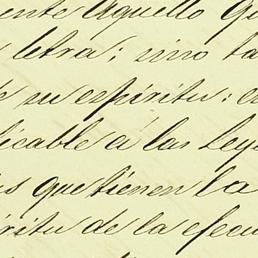 ente aquello q
letra; sino ta
su espíritu: e
licable á las Ley
que tienen la
ritu de la ejecu